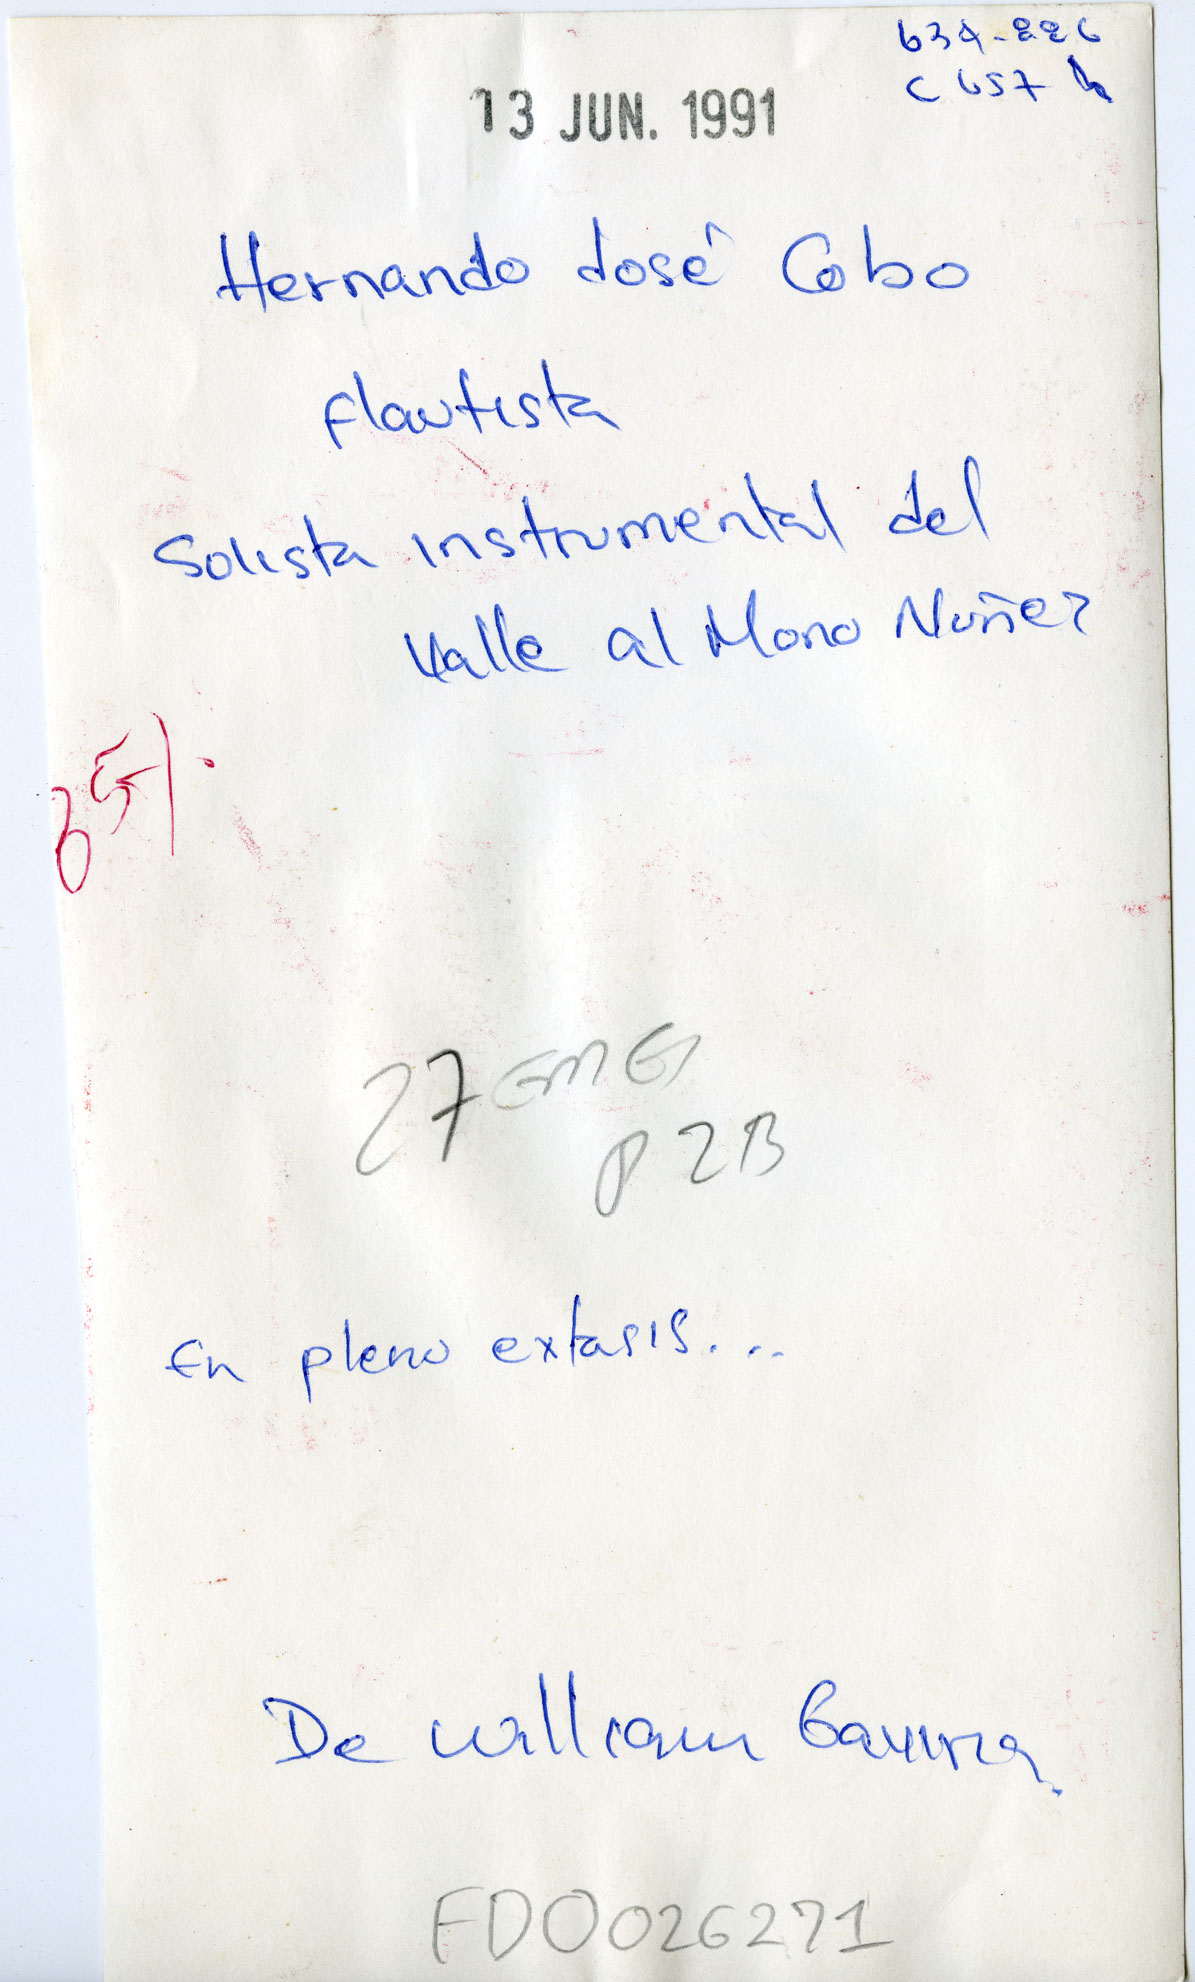 634-226
C657h
13 JUN. 1991
Hernando José Cobo
flautista
Solista instrumental del
Valle al Mono Nuñez
27 EMES
P 2B
En pleno extasis....
De William Gaviria.
FD0026271